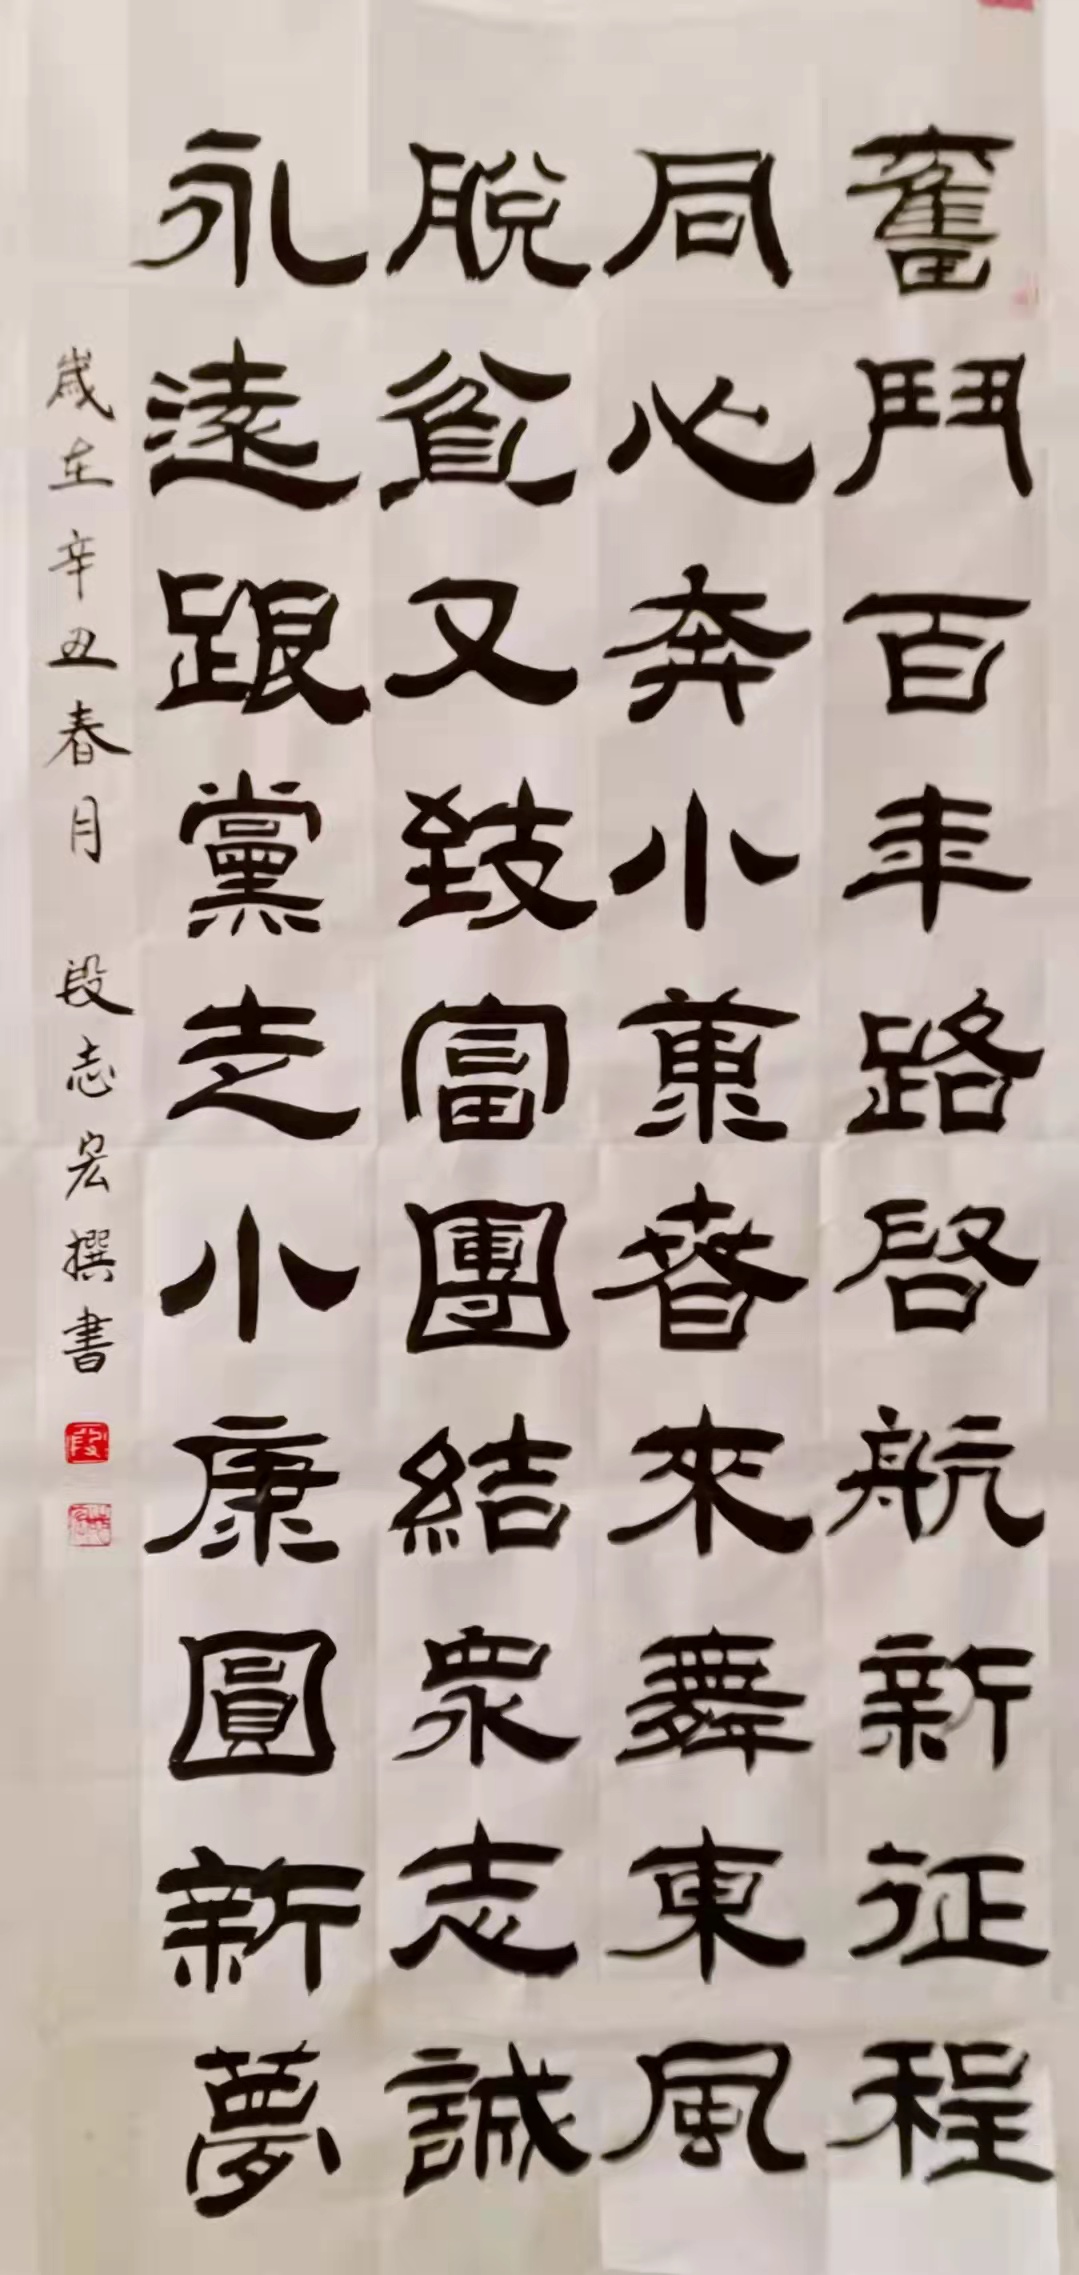 奮鬥百年路啓航新征程
同心奔小康春來舞東風
脫貧又致富團結衆志誠
永遠跟黨走小康圓新夢
歲在辛丑春月 段志宏撰書
段